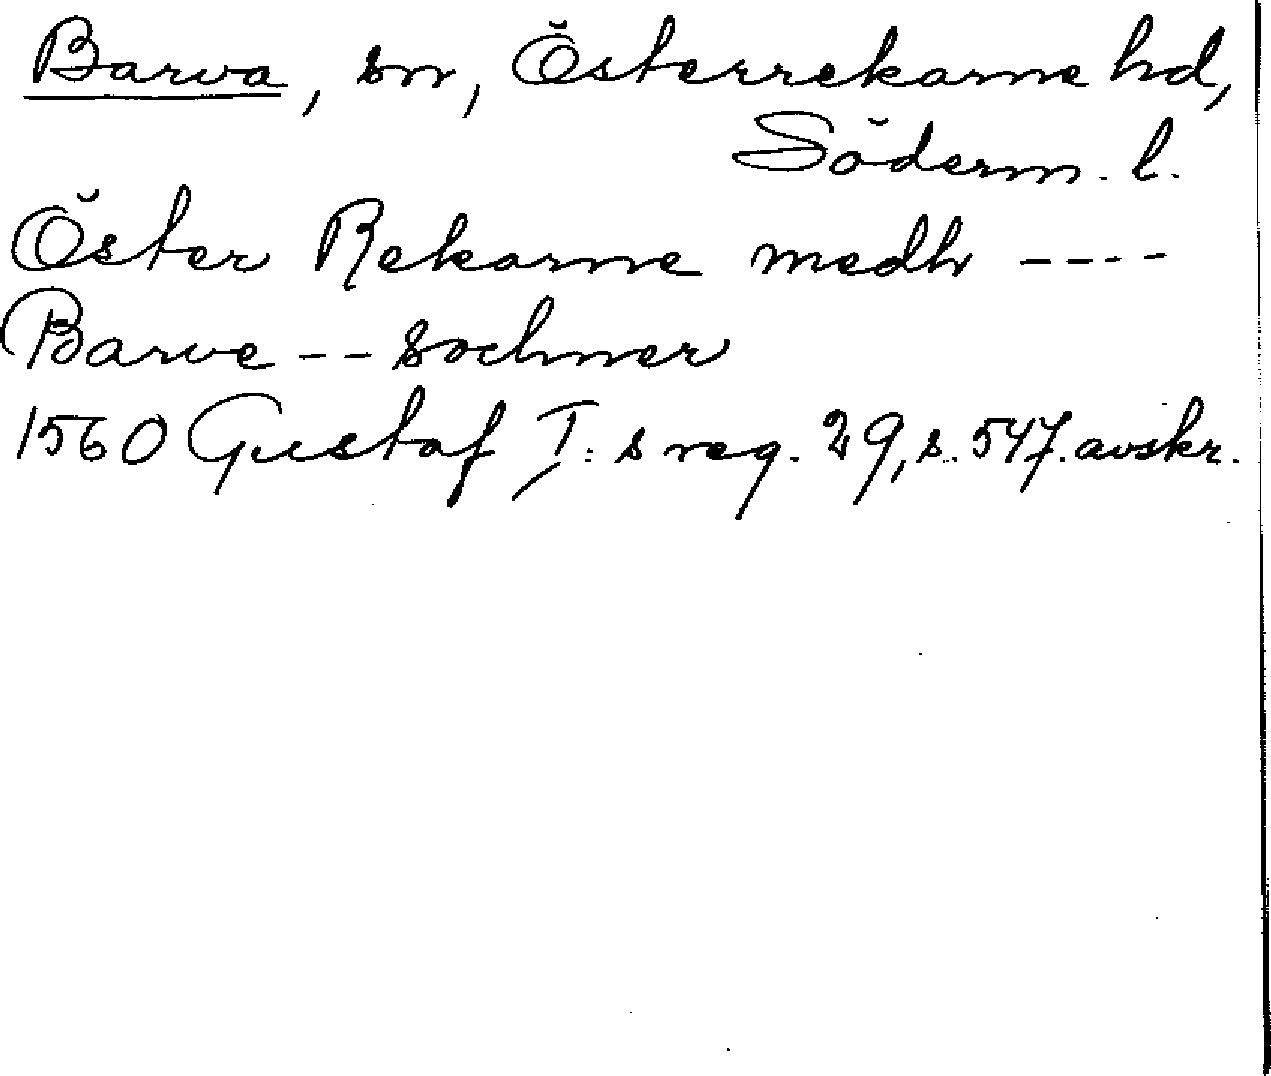 Barva, sn, Österrekarne hd,
Söderm. l.
Öster Rekarne medh ----
Barve -- sochner
1560 Gustaf I: s reg. 29, s. 547. avskr.